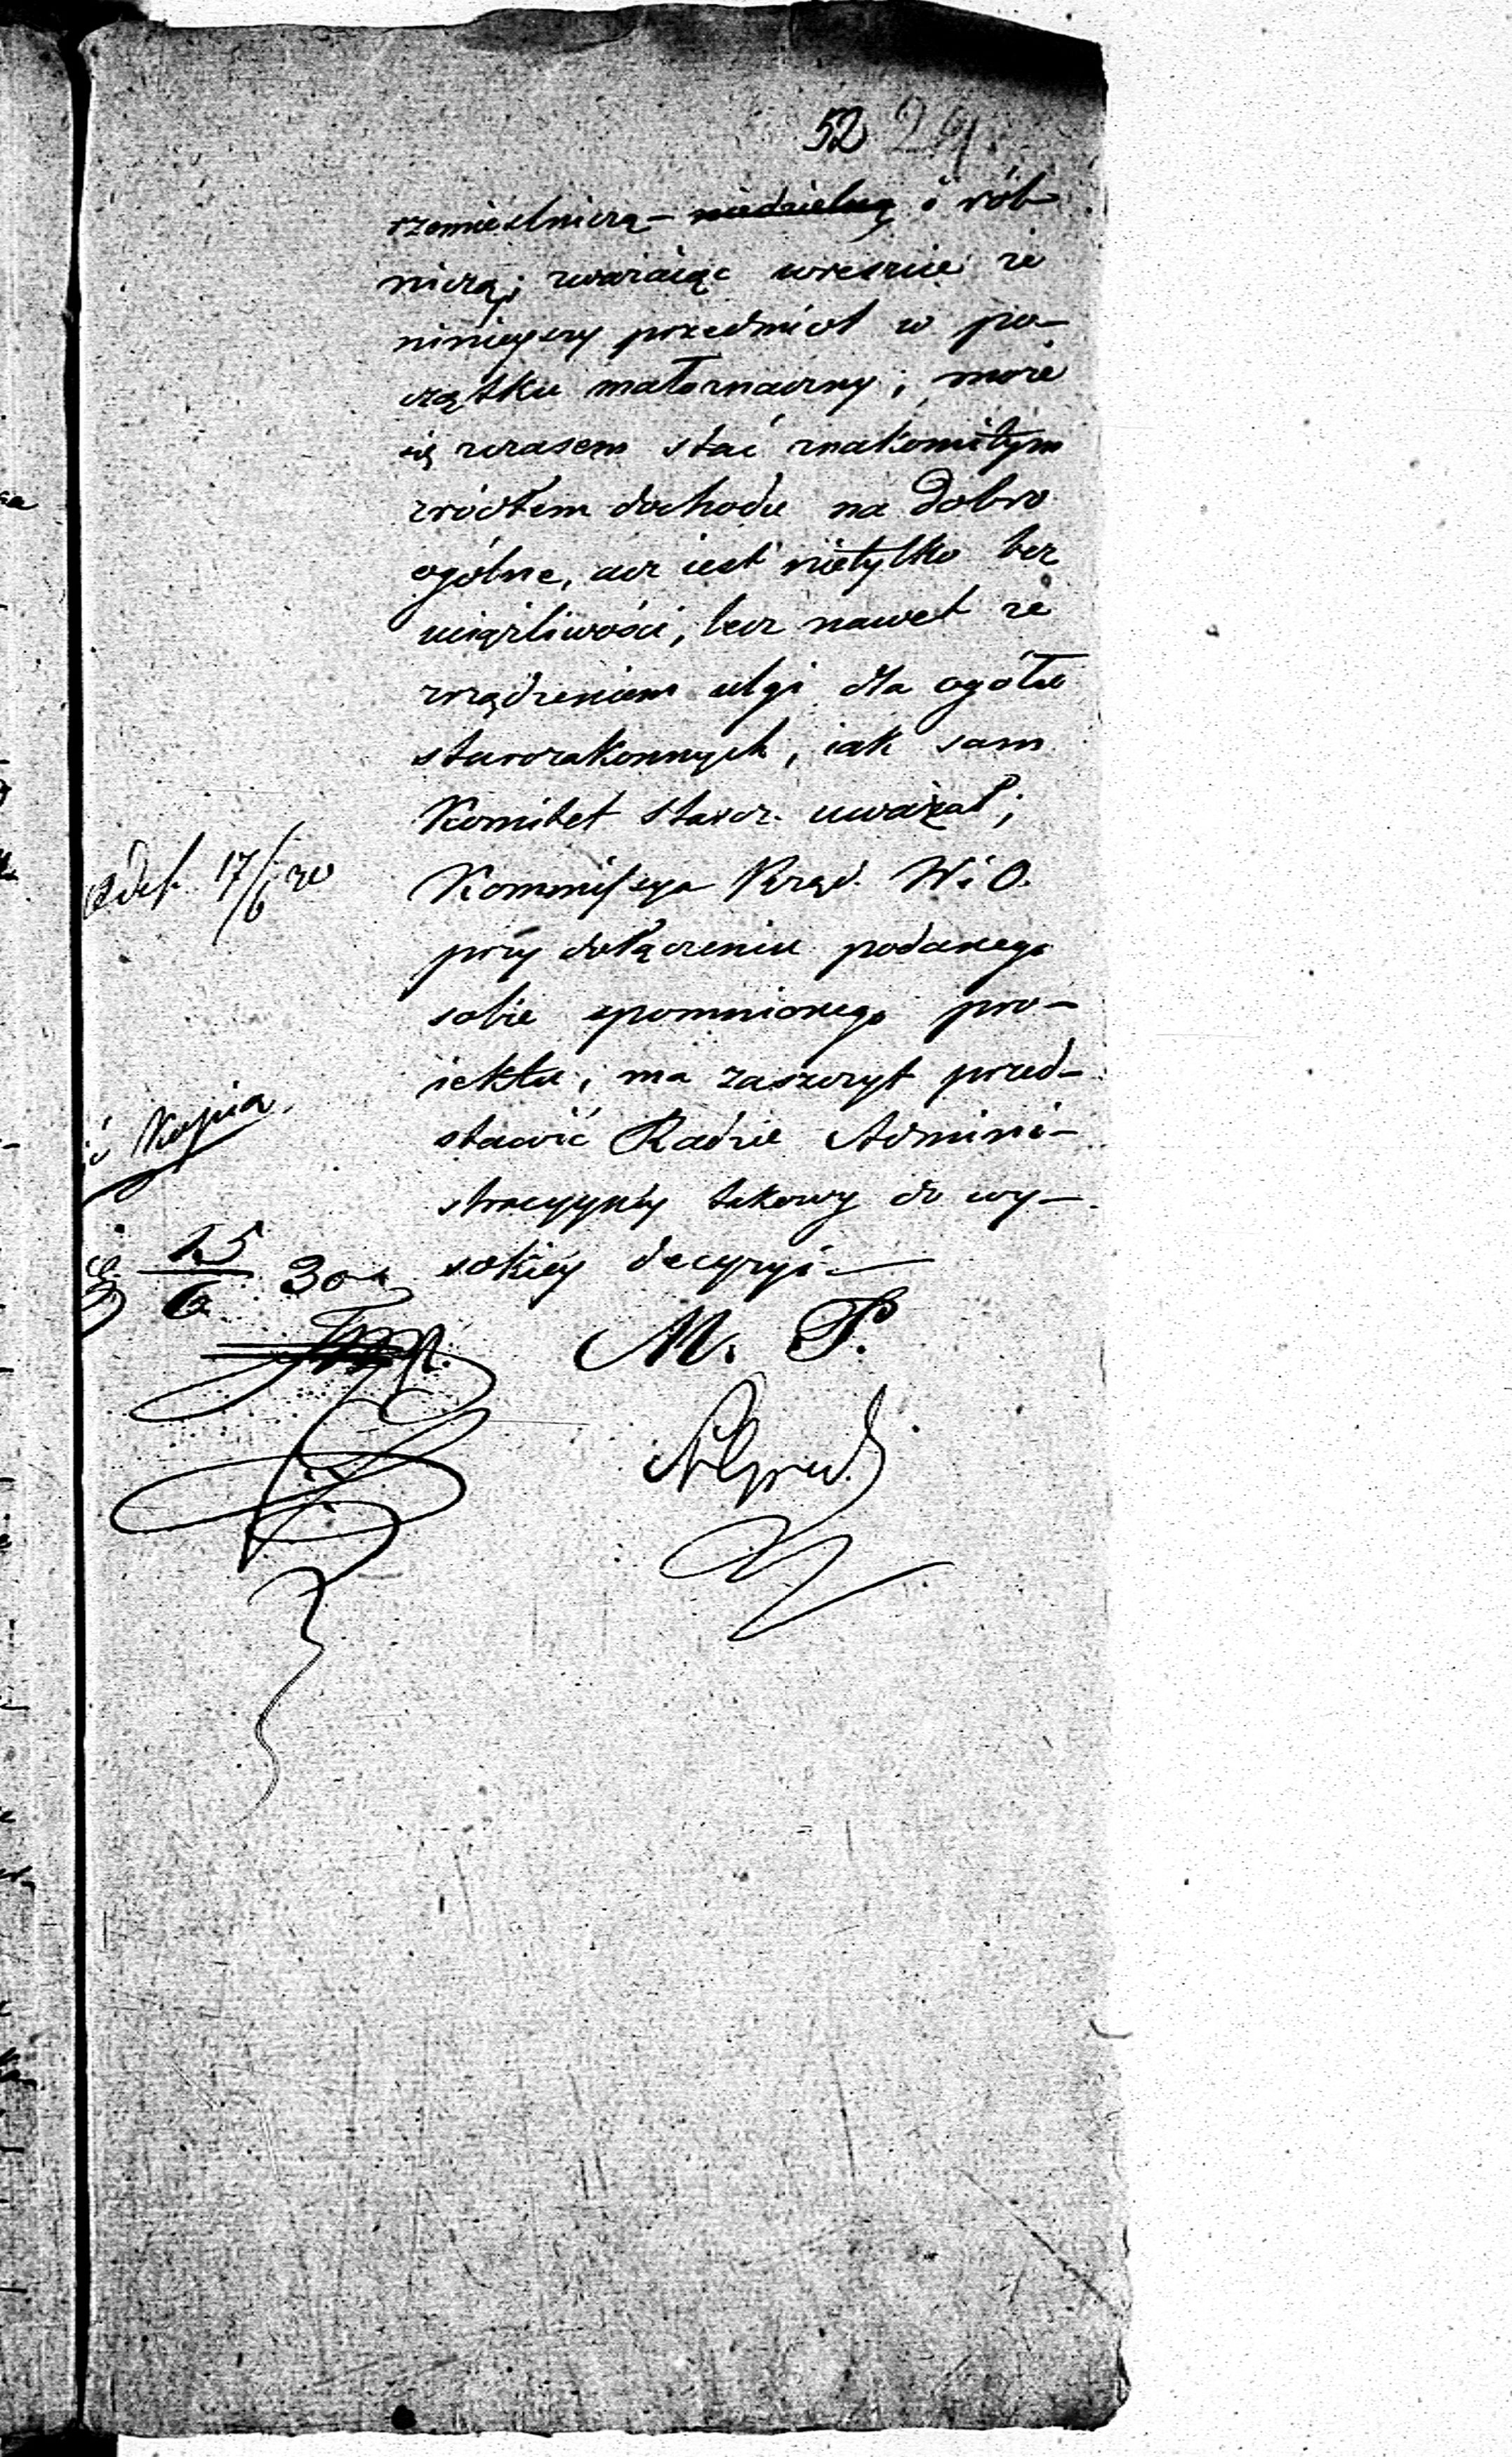 52 29.
rzemieślniczą – niedzielną i rol-
niczą; zważaiąc wreszcie że
ninieyszy przedmiot w po-
czątku małoznaczny, może
się zczasem stać znakomitym
zrzódłem dochodu na dobro
ogólne, acz iest nietylko bez
uciążliwości, lecz nawet ze
zrządzeniem ulgi dla ogółu
starozakonnych, iak sam
Komitet Staroz. uważał;
Kommissya Rząd. W. i O.
przy dołączeniu podanego
sobie spomnionego pro-
iektu, ma zaszczyt przed-
stawić Radzie Admini-
stracyyney takowy do wy-
sokiey decyzyi —
M. P.
17/6
Kopia
15/6 30